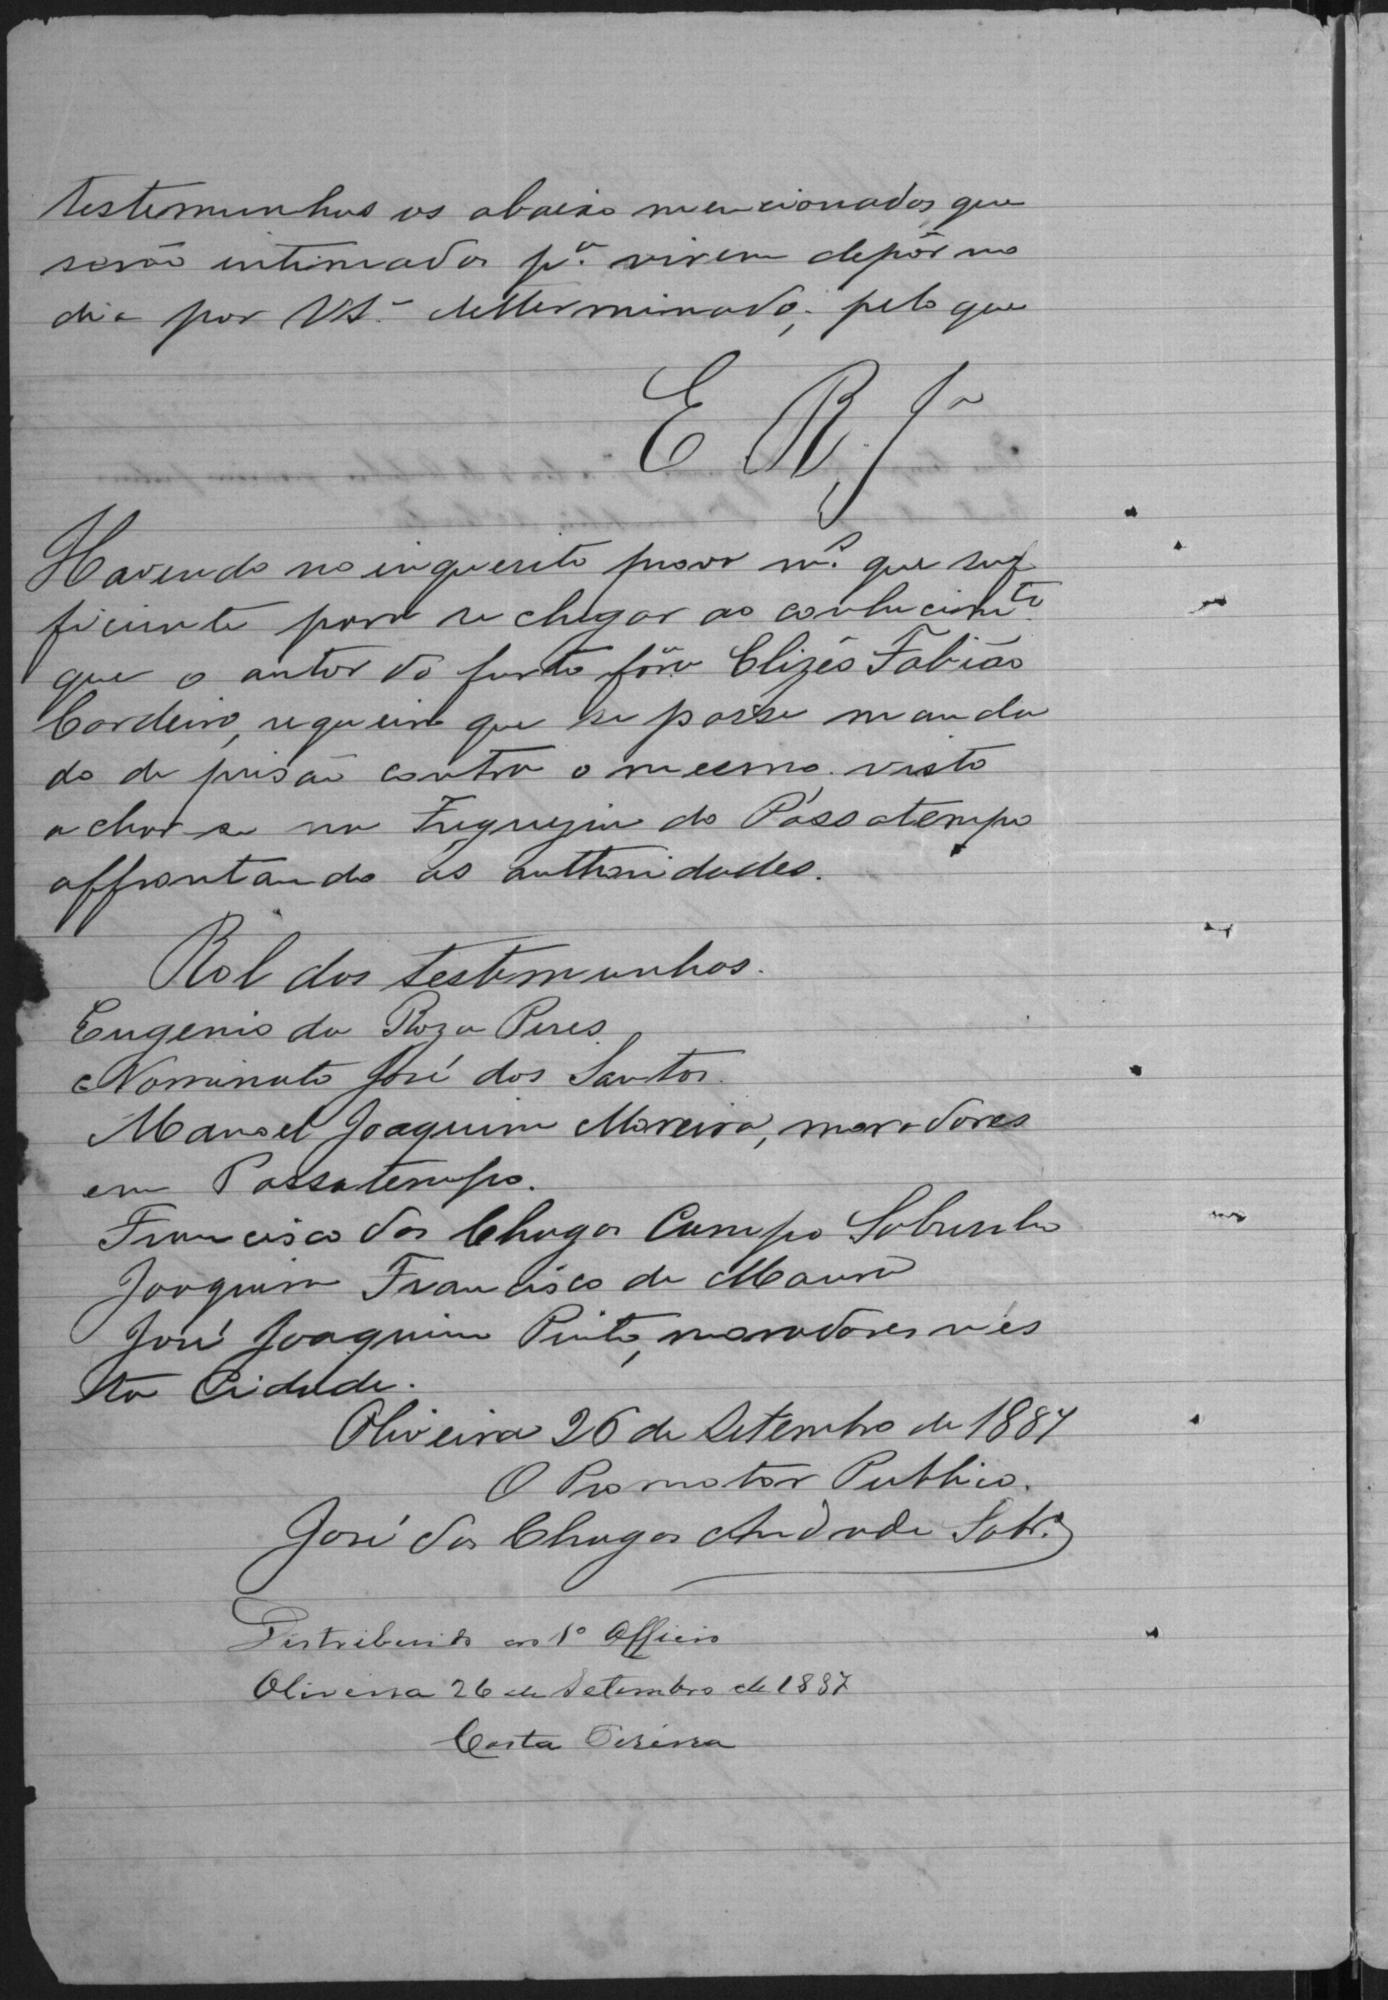 testemunhas os abaixo mencionados, que
serão intimados pª. virem depôr no
dia por VSª determinado; pelo que
E. R. Jª
Havendo no inquerito prova mˢ. que suf
ficiente para se chegar ao conhecimᵗᵒ
que o autor do furto fôra Elizêo Fabião
Cordeiro, requeiro que se passe manda
do de prisão contra o mesmo visto
achar se na Freguezia do Passatempo
affrontando as authoridades.
Rol das testemunhas.
Eugenio da Roza Peres
Nominato José dos Santos.
Manoel Joaquim Moreira, moradores
em Passatempo.
Francisco das Chagas Campo Sobrinho
Joaquim Francisco de Moura
José Joaquim Pinto, moradores n'es
ta Cidade.
Oliveira 26 de Setembro de 1887
O Promotor Publico.
José das Chagas Andrade Sobrº
Distribuido ao 1º Officio
Oliveira 26 de Setembro de 1887
Costa Pereira